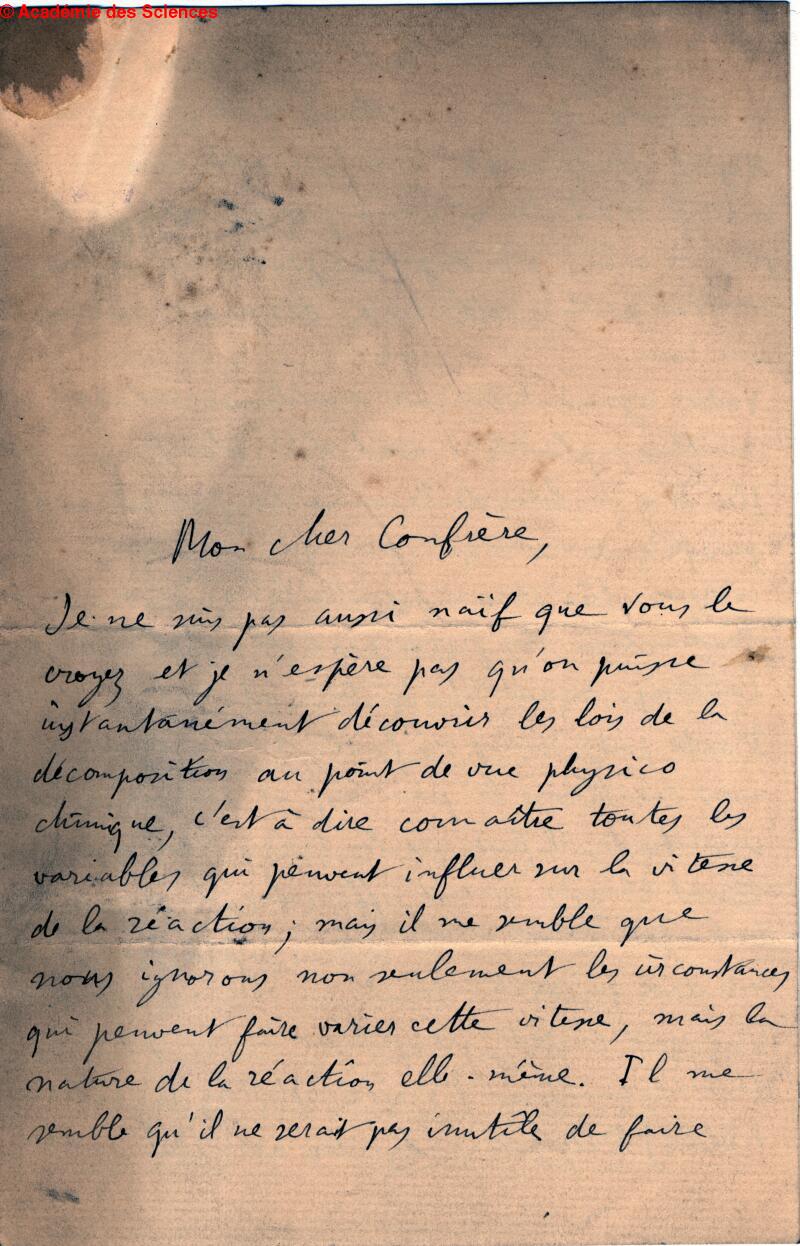 © Académie des Sciences
Mon cher Confrère,
Je ne suis pas aussi naïf que vous le
croyez et je n'espère pas qu'on puisse
instantanément découvrir les lois de la
décomposition au point de vue physico
chimique, c'est à dire connaître toutes les
variables qui peuvent influer sur la vitesse
de la réaction; mais il me semble que
nous ignorons non seulement les circonstances
qui peuvent faire varier cette vitesse, mais la
nature de la réaction elle-même. Il me
semble qu'il ne serait pas inutile de faire